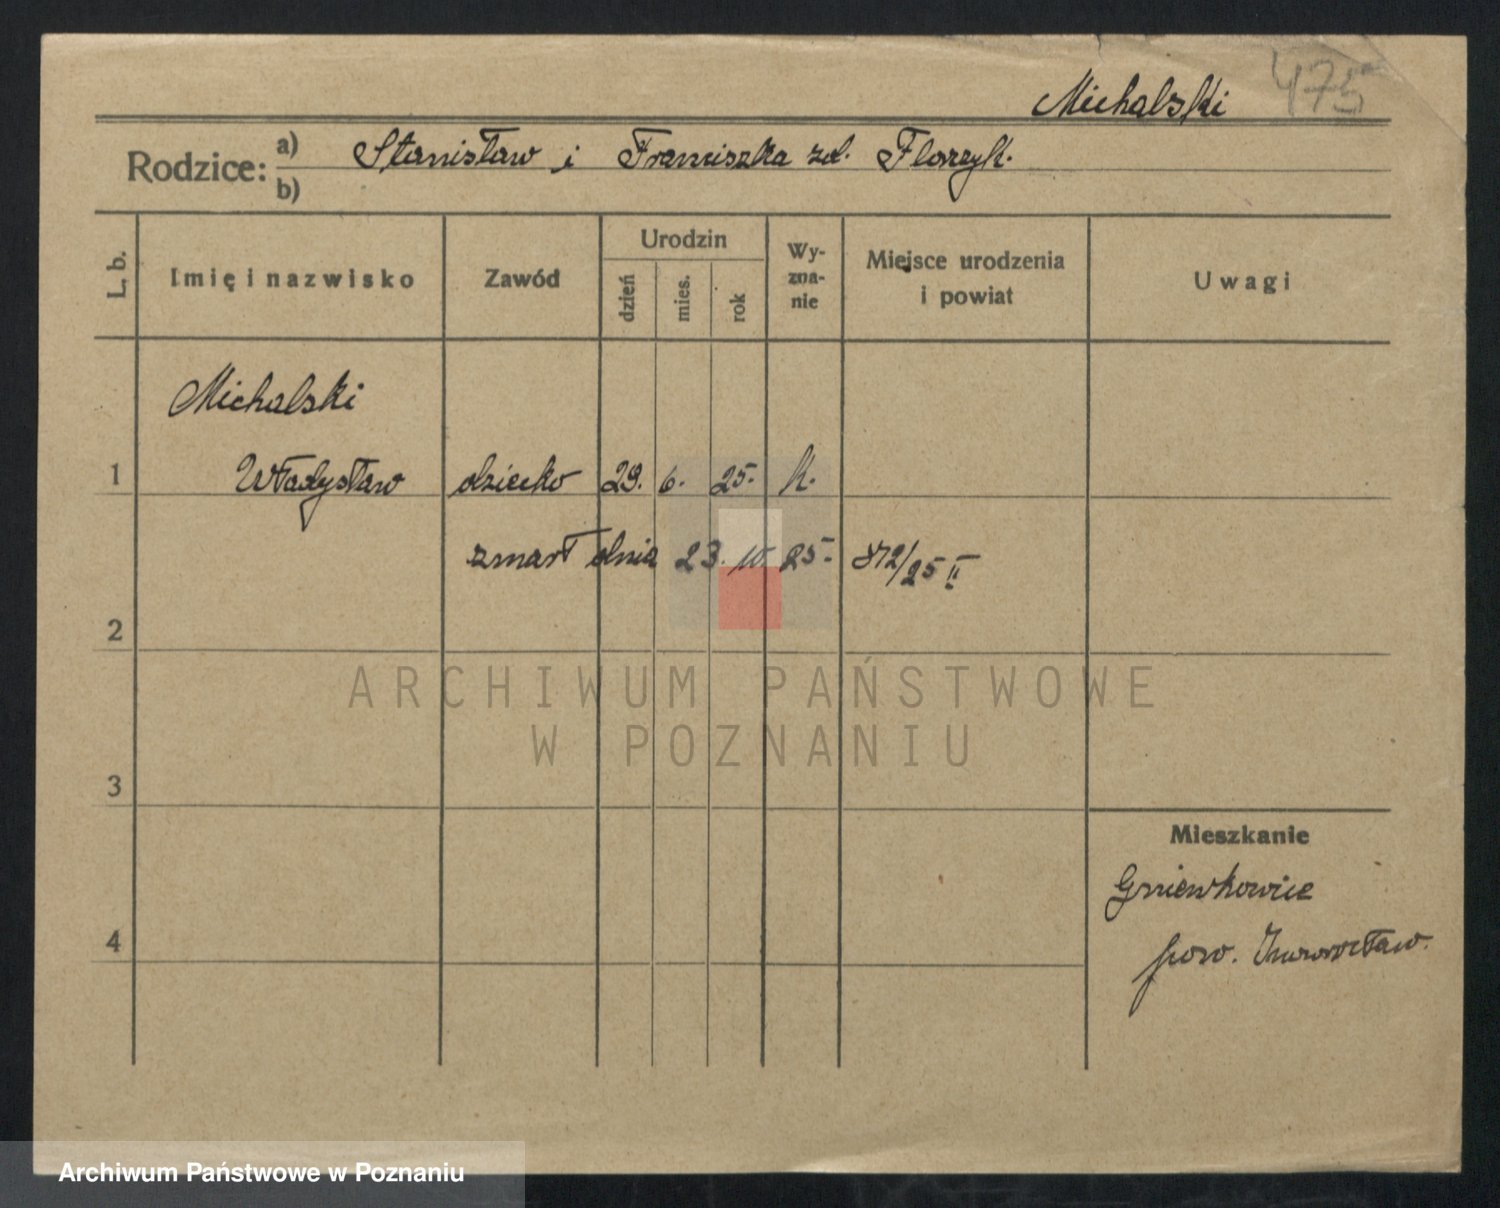 Michalski 475
Rodzice: a) Stanisław i Franciszka zd. Florczyk.
b)
L. b.
Imię i nazwisko
Zawód
Urodzin
dzień
mies.
rok
Wy-
zna-
nie
Miejsce urodzenia
i powiat
Uwagi
Michalski
1 Władysław dziecko 29. 6. 25. k.
zmarł dnia 23. 10. 25. 872/25 II
2
ARCHIWUM PAŃSTWOWE
W POZNANIU
3
Mieszkanie
Gniewkowice
4
pow. Inowrocław.
Archiwum Państwowe w Poznaniu